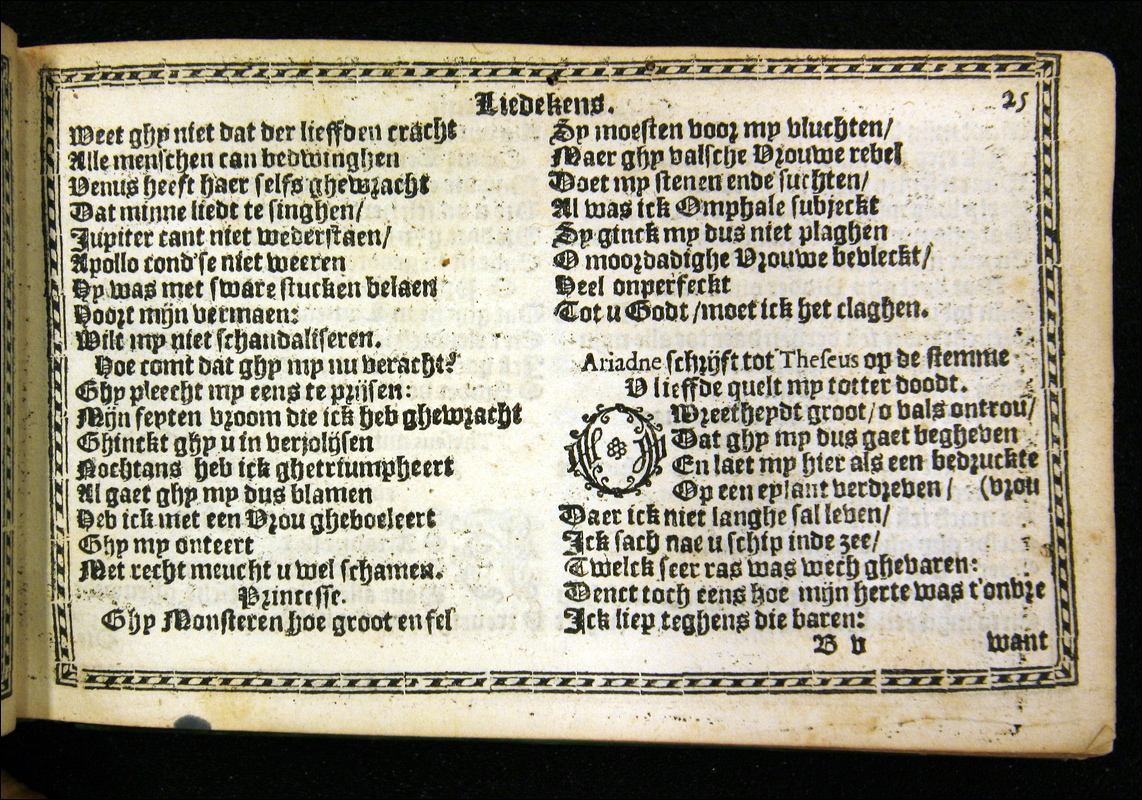 Liedekens. 25
Weet ghy niet dat der lieffden cracht
Alle menschen can bedwinghen
Venus heeft haer selfs ghewracht
Dat minne liedt te singhen/
Jupiter cant niet wederstaen/
Apollo cond'se niet weeren
Hy was met sware stucken belaen
Voort mijn vermaen:
Wilt my niet schandaliseren.
Hoe comt dat ghy my nu veracht?
Ghy pleecht my eens te prijsen:
Mijn feyten vroom die ick heb ghewracht
Ghinckt ghy u in verjolijsen
Nochtans heb ick ghetriumpheert
Al gaet ghy my dus blamen
Heb ick met een Vrou gheboeleert
Ghy my onteert
Met recht meucht u wel schamen.
Princesse.
Ghy Monsteren hoe groot en fel
Sy moesten voor my vluchten/
Maer ghy valsche Vrouwe rebel
Doet my stenen ende suchten/
Al was ick Omphale subjeckt
Sy ginck my dus niet plaghen
O moordadighe Vrouwe bevleckt/
Heel onperfeckt
Tot u Godt/moet ick het claghen.
Ariadne schrijft tot Theseus op de stemme
V lieffde quelt my totter doodt.
O Wreetheydt groot/o vals ontrou/
Dat ghy my dus gaet begheven
En laet my hier als een bedruckte
Op een eylant verdreven/ (vrou
Daer ick niet langhe sal leven/
Ick sach nae u schip inde zee/
Twelck seer ras was wech ghevaren:
Denct toch eens hoe mijn herte was t'onvre
Ick liep teghens die baren:
B v want